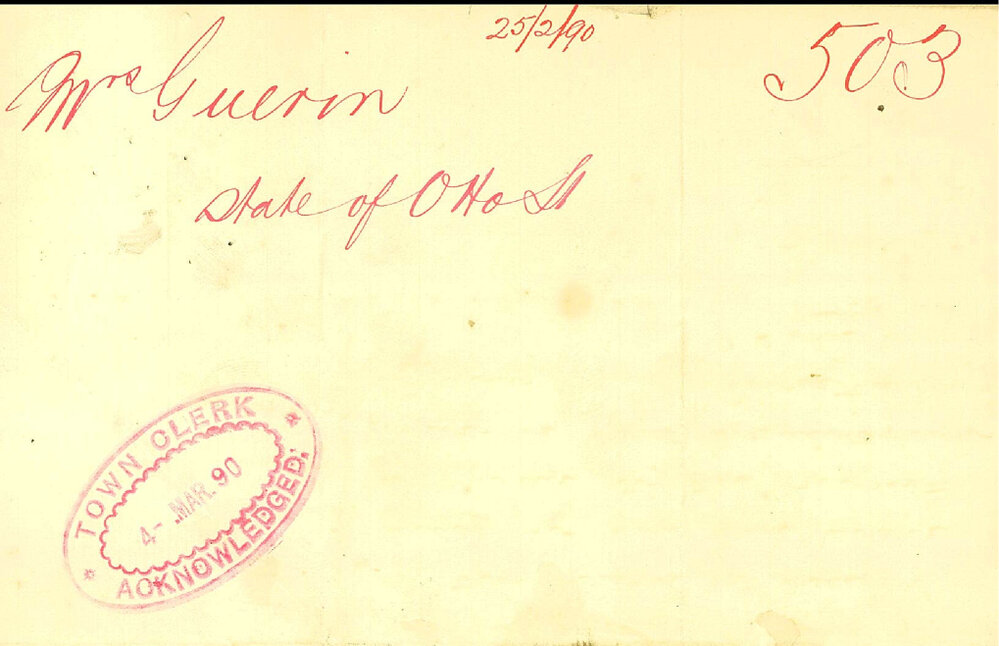 25/2/90
503
Mrs Guerin
State of Otto St
TOWN CLERK
4- MAR. 90
ACKNOWLEDGED.